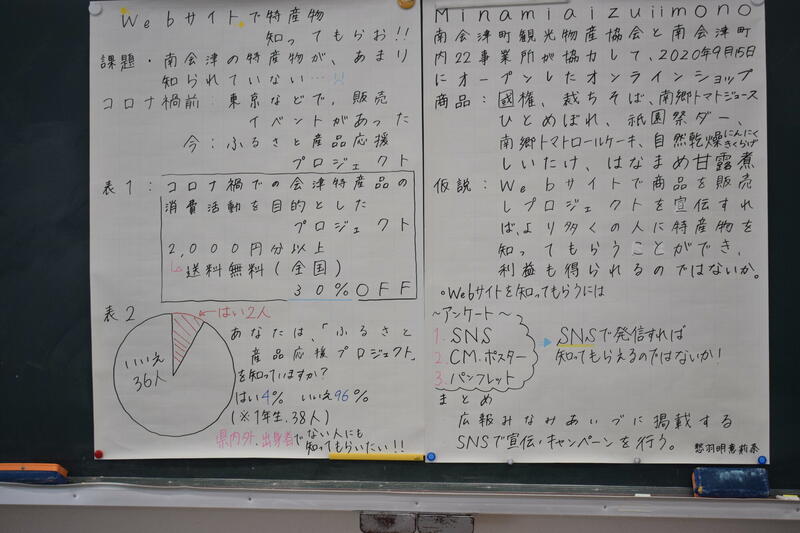 Webサイトで特産物
知ってもらお!!
課題・南会津の特産物が、あまり
知られていない…
コロナ禍前:東京などで、販売
イベントがあった
今:ふるさと産品応援
プロジェクト
表1:コロナ禍での会津特産品の
消費活動を目的とした
プロジェクト
2,000円分以上
↳送料無料(全国)
30%OFF
表2
←はい2人
いいえ
36人
あなたは、「ふるさと
産品応援プロジェクト」
を知っていますか?
はい4% いいえ96%
(※1年生、38人)
県内外、出身者でない人にも
知ってもらいたい!!
Minamiaizuiimono
南会津町観光物産協会と南会津町
内22事業所が協力して、2020年9月15日
にオープンしたオンラインショップ
商品:國権、裁ちそば、南郷トマトジュース
ひとめぼれ、祇園祭ダー、
南郷トマトロールケーキ、自然乾燥にんにくきくらげ
しいたけ、はなまめ甘露煮
仮説:Webサイトで商品を販売
しプロジェクトを宣伝すれ
ば、より多くの人に特産物を
知ってもらうことができ、
利益も得られるのではないか。
。Webサイトを知ってもらうには
〜アンケート〜
1.SNS
2.CM.ポスター
3.パンフレット
▶SNSで発信すれば
知ってもらえるのではないか!
まとめ
広報みなみあいづに掲載する
SNSで宣伝・キャンペーンを行う。